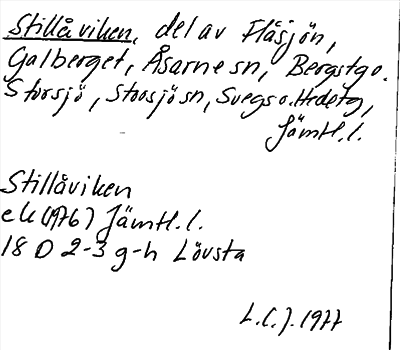 Stillåviken, del av Flåsjön,
Galberget, Åsarne sn, Bergs tg o.
Storsjö, Storsjö sn, Svegs o. Hede tg,
Jämtl.l.
Stillåviken
ek (1976) Jämtl.l.
18 D 2-3 g-h Lövsta
L.C.J. 1977